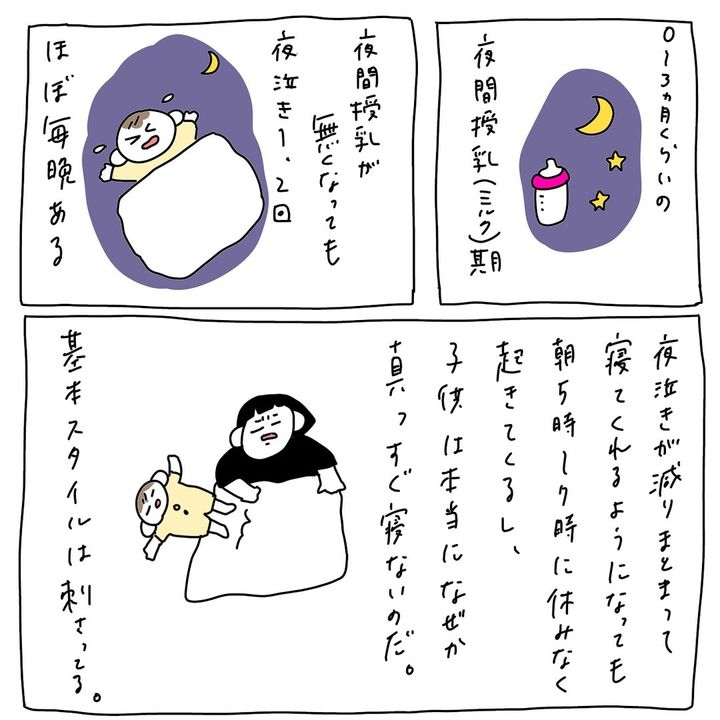 0〜3ヵ月くらいの
夜間授乳(ミルク)期
夜間授乳が
無くなっても
夜泣き1、2回
ほぼ毎晩ある
夜泣きが減りまとまって
寝てくれるようになっても
朝5時〜7時に休みなく
起きてくるし、
子供は本当になぜか
真っすぐ寝ないのだ。
基本スタイルは刺さってる。